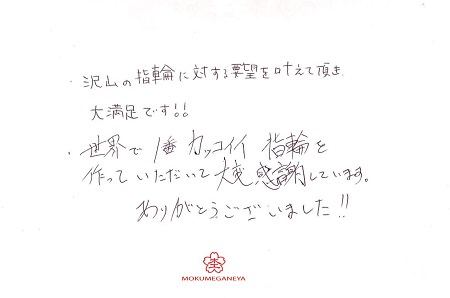 ・沢山の指輪に対する要望を叶えて頂き
大満足です!!
・世界で1番カッコイイ指輪を
作っていただいて大変感謝しています。
ありがとうございました!!
MOKUMEGANEYA